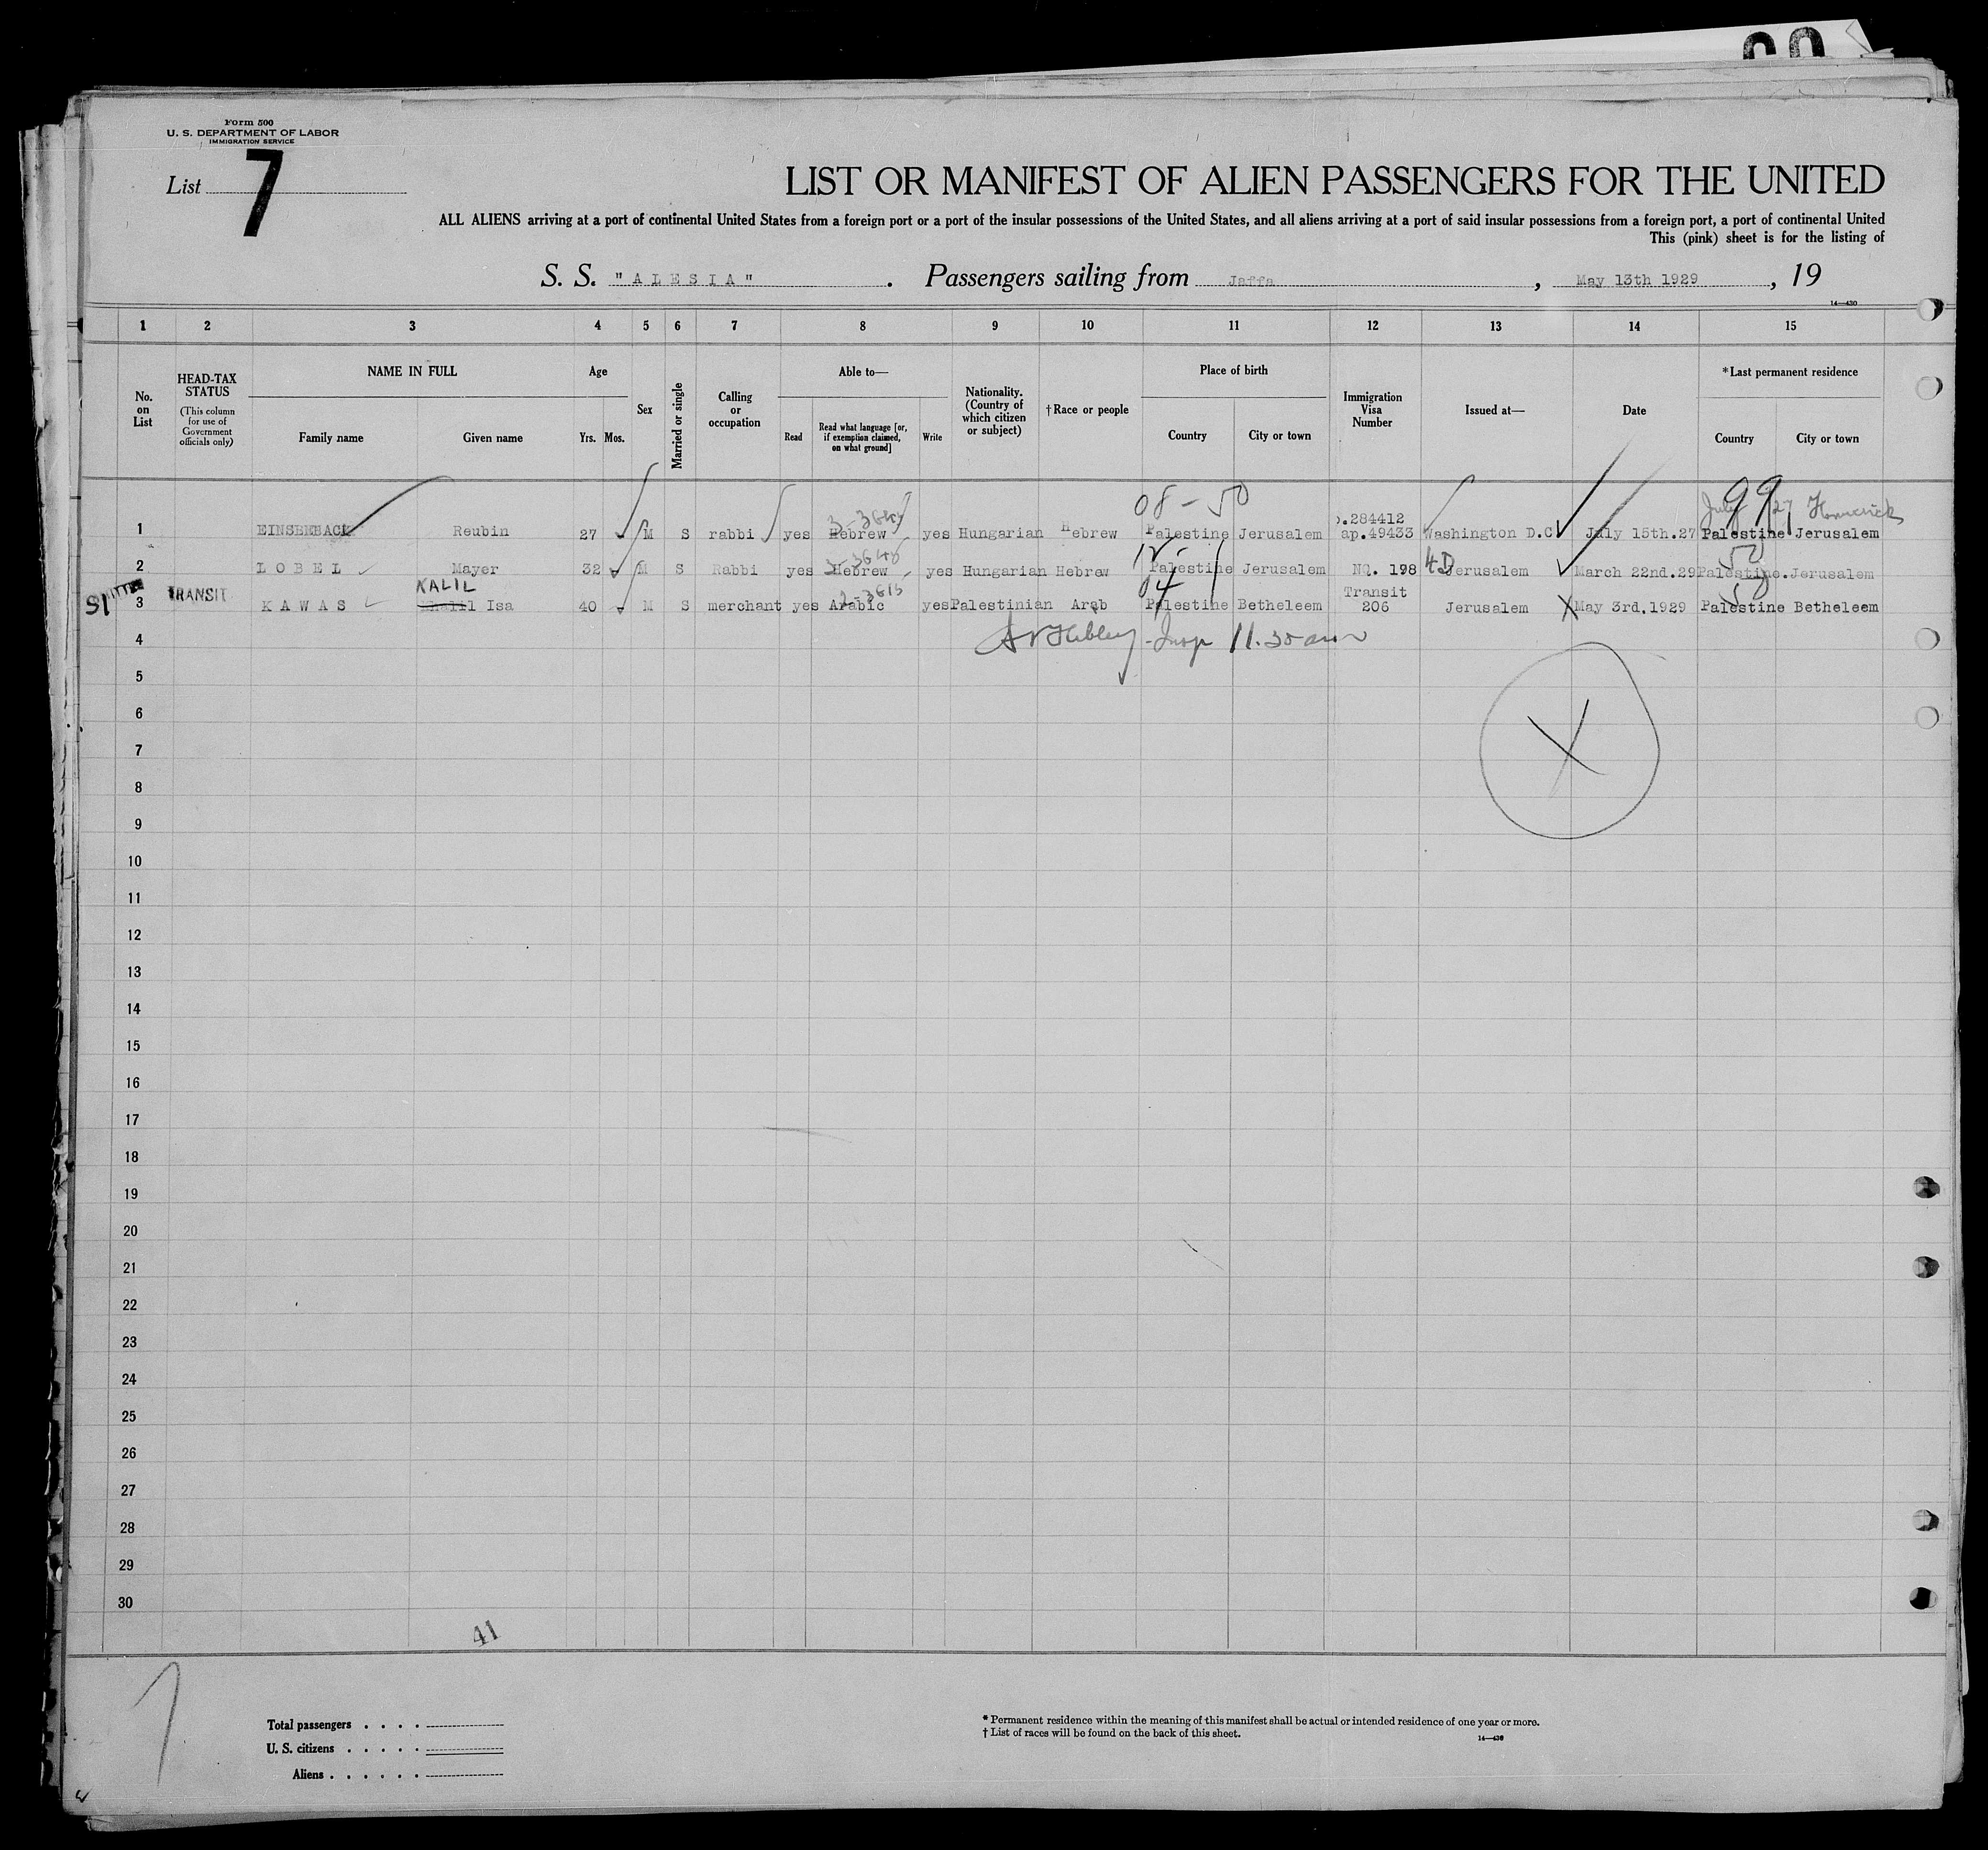 Form 500
U. S. DEPARTMENT OF LABOR
IMMIGRATION SERVICE
List 7
LIST OR MANIFEST OF ALIEN PASSENGERS FOR THE UNITED
ALL ALIENS arriving at a port of continental United States from a foreign port or a port of the insular possessions of the United States, and all aliens arriving at a port of said insular possessions from a foreign port, a port of continental United
This (pink) sheet is for the listing of
S. S. "ALESIA". Passengers sailing from Jaffa, May 13th 1929, 19
14—430
1 2 3 4 5 6 7 8 9 10 11 12 13 14 15
No. on List
HEAD-TAX STATUS
(This column for use of Government officials only)
NAME IN FULL
Family name Given name
Age
Yrs. Mos.
Sex
Married or single
Calling or occupation
Able to—
Read
Read what language [or, if exemption claimed, on what ground]
Write
Nationality. (Country of which citizen or subject)
†Race or people
Place of birth
Country City or town
Immigration Visa Number
Issued at—
Date
*Last permanent residence
Country City or town
08 - 50 99
July 27
.284412
1 Reubin 27 M S rabbi yes Hebrew yes Hungarian Hebrew Palestine Jerusalem ap.49433 Washington D.C July 15th.27 Palestine Jerusalem
2 LOBEL Mayer 32 M S Rabbi yes Hebrew yes Hungarian Hebrew Palestine Jerusalem NO. 198 4D Jerusalem March 22nd.29 Palestine. Jerusalem
KALIL
04
Transit
SI TRANSIT 3 KAWAS Isa 40 M S merchant yes Arabic yes Palestinian Arab Palestine Betheleem 206 Jerusalem X May 3rd.1929 Palestine Betheleem
4 Insp 11.30 am
5
6
7 X
8
9
10
11
12
13
14
15
16
17
18
19
20
21
22
23
24
25
26
27
28
29
30
41
7
Total passengers
U. S. citizens
Aliens
* Permanent residence within the meaning of this manifest shall be actual or intended residence of one year or more.
† List of races will be found on the back of this sheet.
14—430